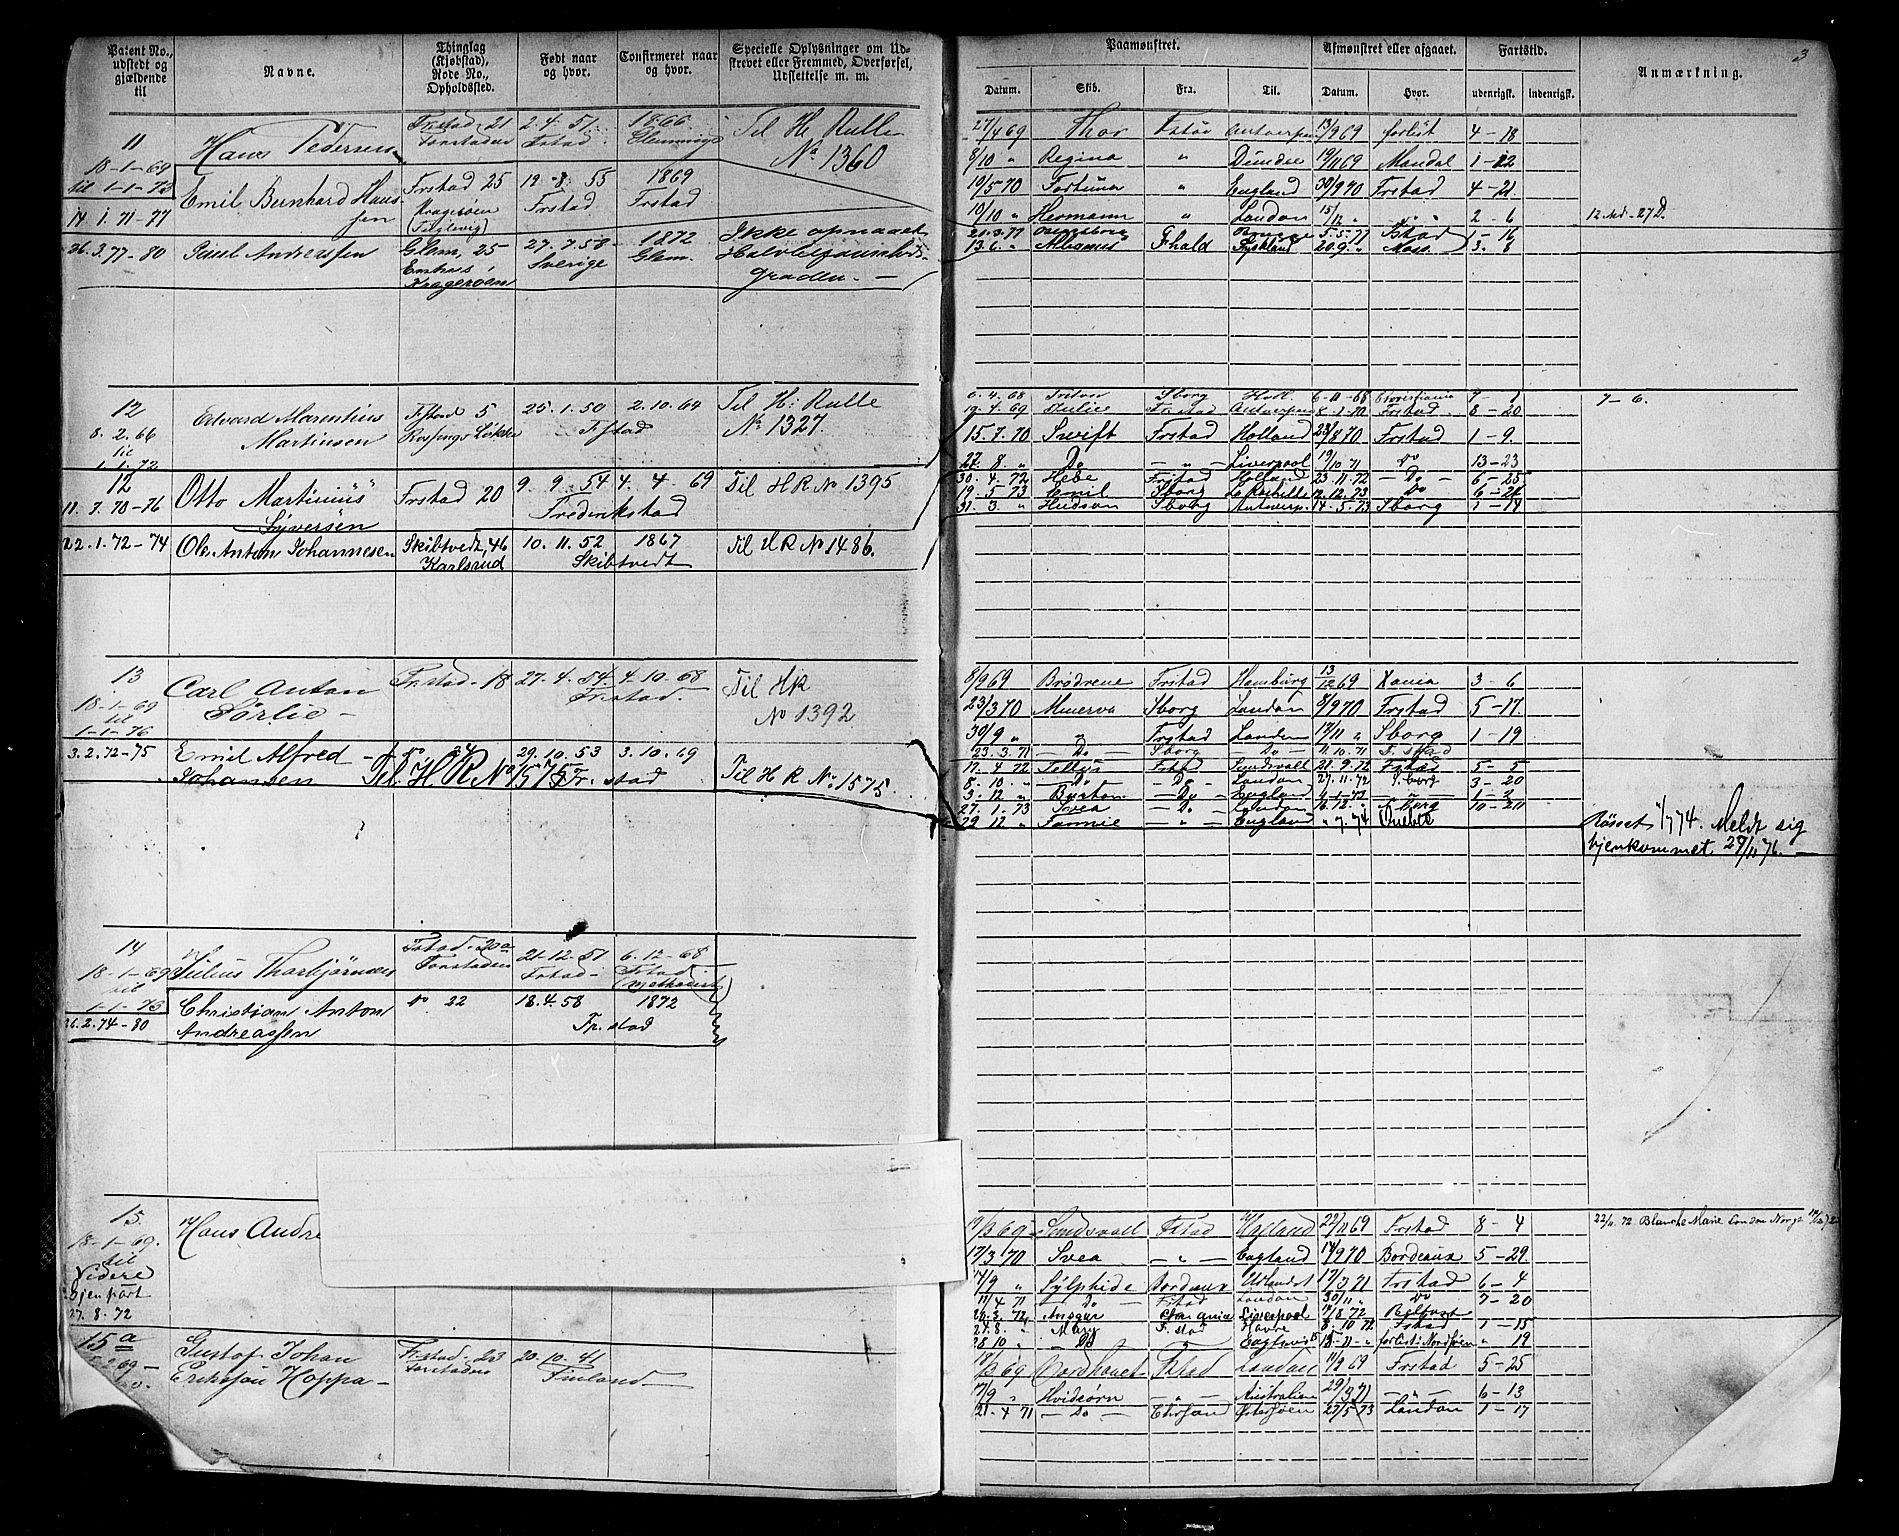 3
Patent No., udstedt og gjældende til
Navne.
Thinglag (Kjøbstad), Rode No., Opholdssted.
Født naar og hvor.
Confirmeret naar og hvor.
Specielle Oplysninger om Udskrevet eller Fremmed, Overførsel, Udslettelse m. m.
Paamønstret.
Afmønstret eller afgaaet.
Fartstid.
Anmærkning.
Datum. Skib. Fra. Til. Datum. Hvor. udenrigsk. indenrigsk.
11
18-1-69
til 1-1-73
Hans Pedersen
Frstad 21
2.4.51. Fstad.
1866
Til H. Rulle
No 1360
14.1.71-77
Emil Bernhard Hanssen
Frstad 25
Kragerøen
19-8-55
Frstad
1869
Frstad
26.3.77-80
Paul Andreassen
Glem, 25
Kragerøen
27.7.58
Sverige
1872
Glem.
Ikke opnaaet
graden. -
27/4 69 Thor Fstad Antwerpen 13/9 69 forlist 4-18
8/10 " Regina " Dundee 19/11 69 Mandal 1-12
10/5 70 Fortuna " England 30/9 70 Frstad 4-21
10/10 " Hermann " London 15/12 " " " 2-6
12 Md-27D.
5.5.77 Fstad 1-16
13.6. " Albanus Fhald Tyskland 20.9. " Moss 3.8
12
8.2.66
til
1.1.72
Edvard Marentius
Martinsen
Fstad 5
25.1.50
Fstad
2.10.64
Til H. Rulle
No 1327
12
11.7.70-76
Otto Martinius
Syversen
Frstad 20
9.9.54
Fredrikstad
4.4.69
Til HR No 1395
22.1.72-74
Ole Anton Johannesen
Skibtvedt, 46
Karlsrud
10.11.52
Skibtvedt
1867
Til HR No 1486.
6.4.68 Triton Sborg Holl. 6-11-68 Christiania 7-1
7-6.
19.4.69 Julie Frstad Antwerpen 8.1.70 Frstad 8-20
15.7.70 Swift Frstad Holland 23/8 70 Frstad 1-9.
27.8. " Do - " - Liverpool 19/10 71 Do 13-23
30.4.72 Hebe Frstad Holland 23.11.72 - Do - 6-25
19.5.73 Emil Sborg 12.12.73 Do 6-24
31.3. " Hudson Sborg Antwerp. 14.5.73 Sborg 1-14
13
18-1-69
til
1-1-76
Carl Anton
Sørlie -
Frstad-18
27.4.54.
Frstad.
4.10.68
Til HR
No 1392
3.2.72-75
Emil Alfred
Johansen
Do 24
29.10.53
Fr. stad
3.10.69
Til H R No 1575
Til H R No. 1575
8/9 69 Brødrene Frstad Hamburg 13/12 69 Xania 3-6
23/3 70 Minerva Sborg London 8/9 70 Frstad 5-17
30/9 " " Frstad London 17/11 " Sborg 1-19
23.3.71 - Do - Sborg - Do - 11.10.71 F. stad
17.4.72 Fstad Sundsvall 21.9.72 Fstad 5-5
8.10. " - Do - - Do - London 27.11.72 Sborg 3-20
3.12 " Burton - Do - England 4.1.73 - " - 1-2
27.1.73 Svea - Do - London 16.12. " Sborg 10-20
29.12 " Fannie - " - England " 7.74 Quebec
Rømt 1/7 74. Meldt sig
hjemkommet 29/11 76. -
14
18-1-69
til
1-1-73
Julius Thorbjørnsen
Fstad-20a
21-12-51
Fstad-
6-12-68
Fstad
(Methodist)
26.2.74-80
Christian Anton
Andreassen
Do 22
18.4.58
Fr. stad
1872
15
18-1-69.
til
Videre
27.8.72
Hans Andre
17/3 69 Sundsvall Fstad England 22/11 69 Frstad 8-4
22/10 72. Blanche Marie London Norge
17/3 70 Svea - " - England 14/9 70 Bordeaux 5-29
14/9 " Sylphide Bordeaux Udlandet 17/3 71 Frstad 6-4
11/4 71 Do Fstad London 30/11 " Do 7-20
28.3.72 Ansgar Liverpool 19/8 72 Belfast
27.8. " Mary F. stad Havre 8.10.72 Fstad 1-15
28.10 " Do 15-11- " " 19
15 a
Gustof Johan
Eriksson Hoppa -
Frstad-23
20.10.41
Finland
18/3 69 Nordhavet Fstad London 11/9 69 Frstad 5-25
17/9 " Hvideørn - " - Australien 29/3 71 - " - 6-13
21.4.71 - Do - Chrsan Østersøen 22/5 73 London 1-17